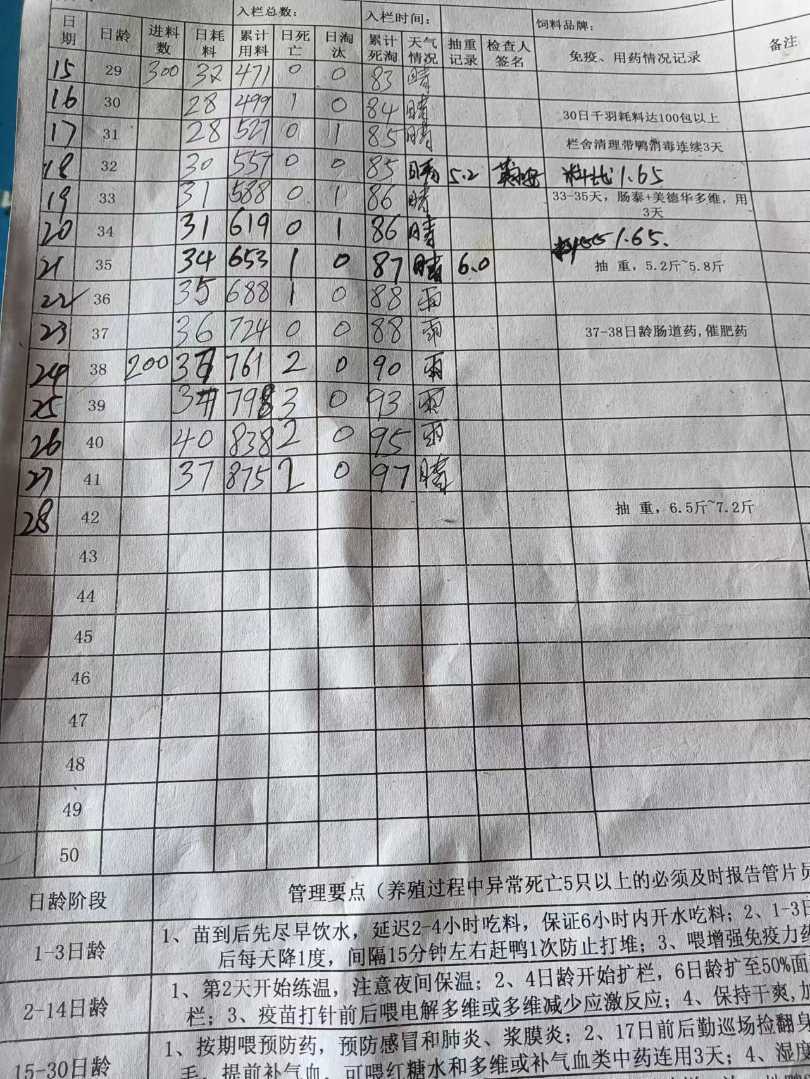 入栏总数： 入栏时间： 饲料品牌：
日期 日龄 进料数 日耗料 累计用料 日死亡 日淘汰 累计死淘 天气情况 抽重记录 检查人签名 免疫、用药情况记录 备注
15 29 300 32 471 0 0 83 晴
16 30 28 499 1 0 84 晴 30日千羽耗料达100包以上
17 31 28 527 0 1 85 晴 栏舍清理带鸭消毒连续3天
18 32 30 557 0 0 85 晴 5.2 料比1.65
19 33 31 588 0 1 86 晴 33-35天，肠泰+美德华多维，用3天
20 34 31 619 0 1 86 晴 1.65.
21 35 34 653 1 0 87 晴 6.0 抽 重，5.2斤~5.8斤
22 36 35 688 1 0 88 雨
23 37 36 724 0 0 88 雨 37-38日龄肠道药,催肥药
24 38 200 37 761 2 0 90 雨
25 39 37 798 3 0 93 雨
26 40 40 838 2 0 95 雨
27 41 37 875 2 0 97 晴
28 42 抽 重，6.5斤~7.2斤
43
44
45
46
47
48
49
50
日龄阶段 管理要点（养殖过程中异常死亡5只以上的必须及时报告管片员
1-3日龄 1、苗到后先尽早饮水，延迟2-4小时吃料，保证6小时内开水吃料；2、1-3日
后每天降1度，间隔15分钟左右赶鸭1次防止打堆；3、喂增强免疫力药
2-14日龄 1、第2天开始练温，注意夜间保温；2、4日龄开始扩栏，6日龄扩至50%面
栏；3、疫苗打针前后喂电解多维或多维减少应激反应；4、保持干爽,加
15-30日龄 1、按期喂预防药，预防感冒和肺炎、浆膜炎；2、17日前后勤巡场捡翻身
毛，提前补气血，可喂红糖水和多维或补气血类中药连用3天；4、湿度